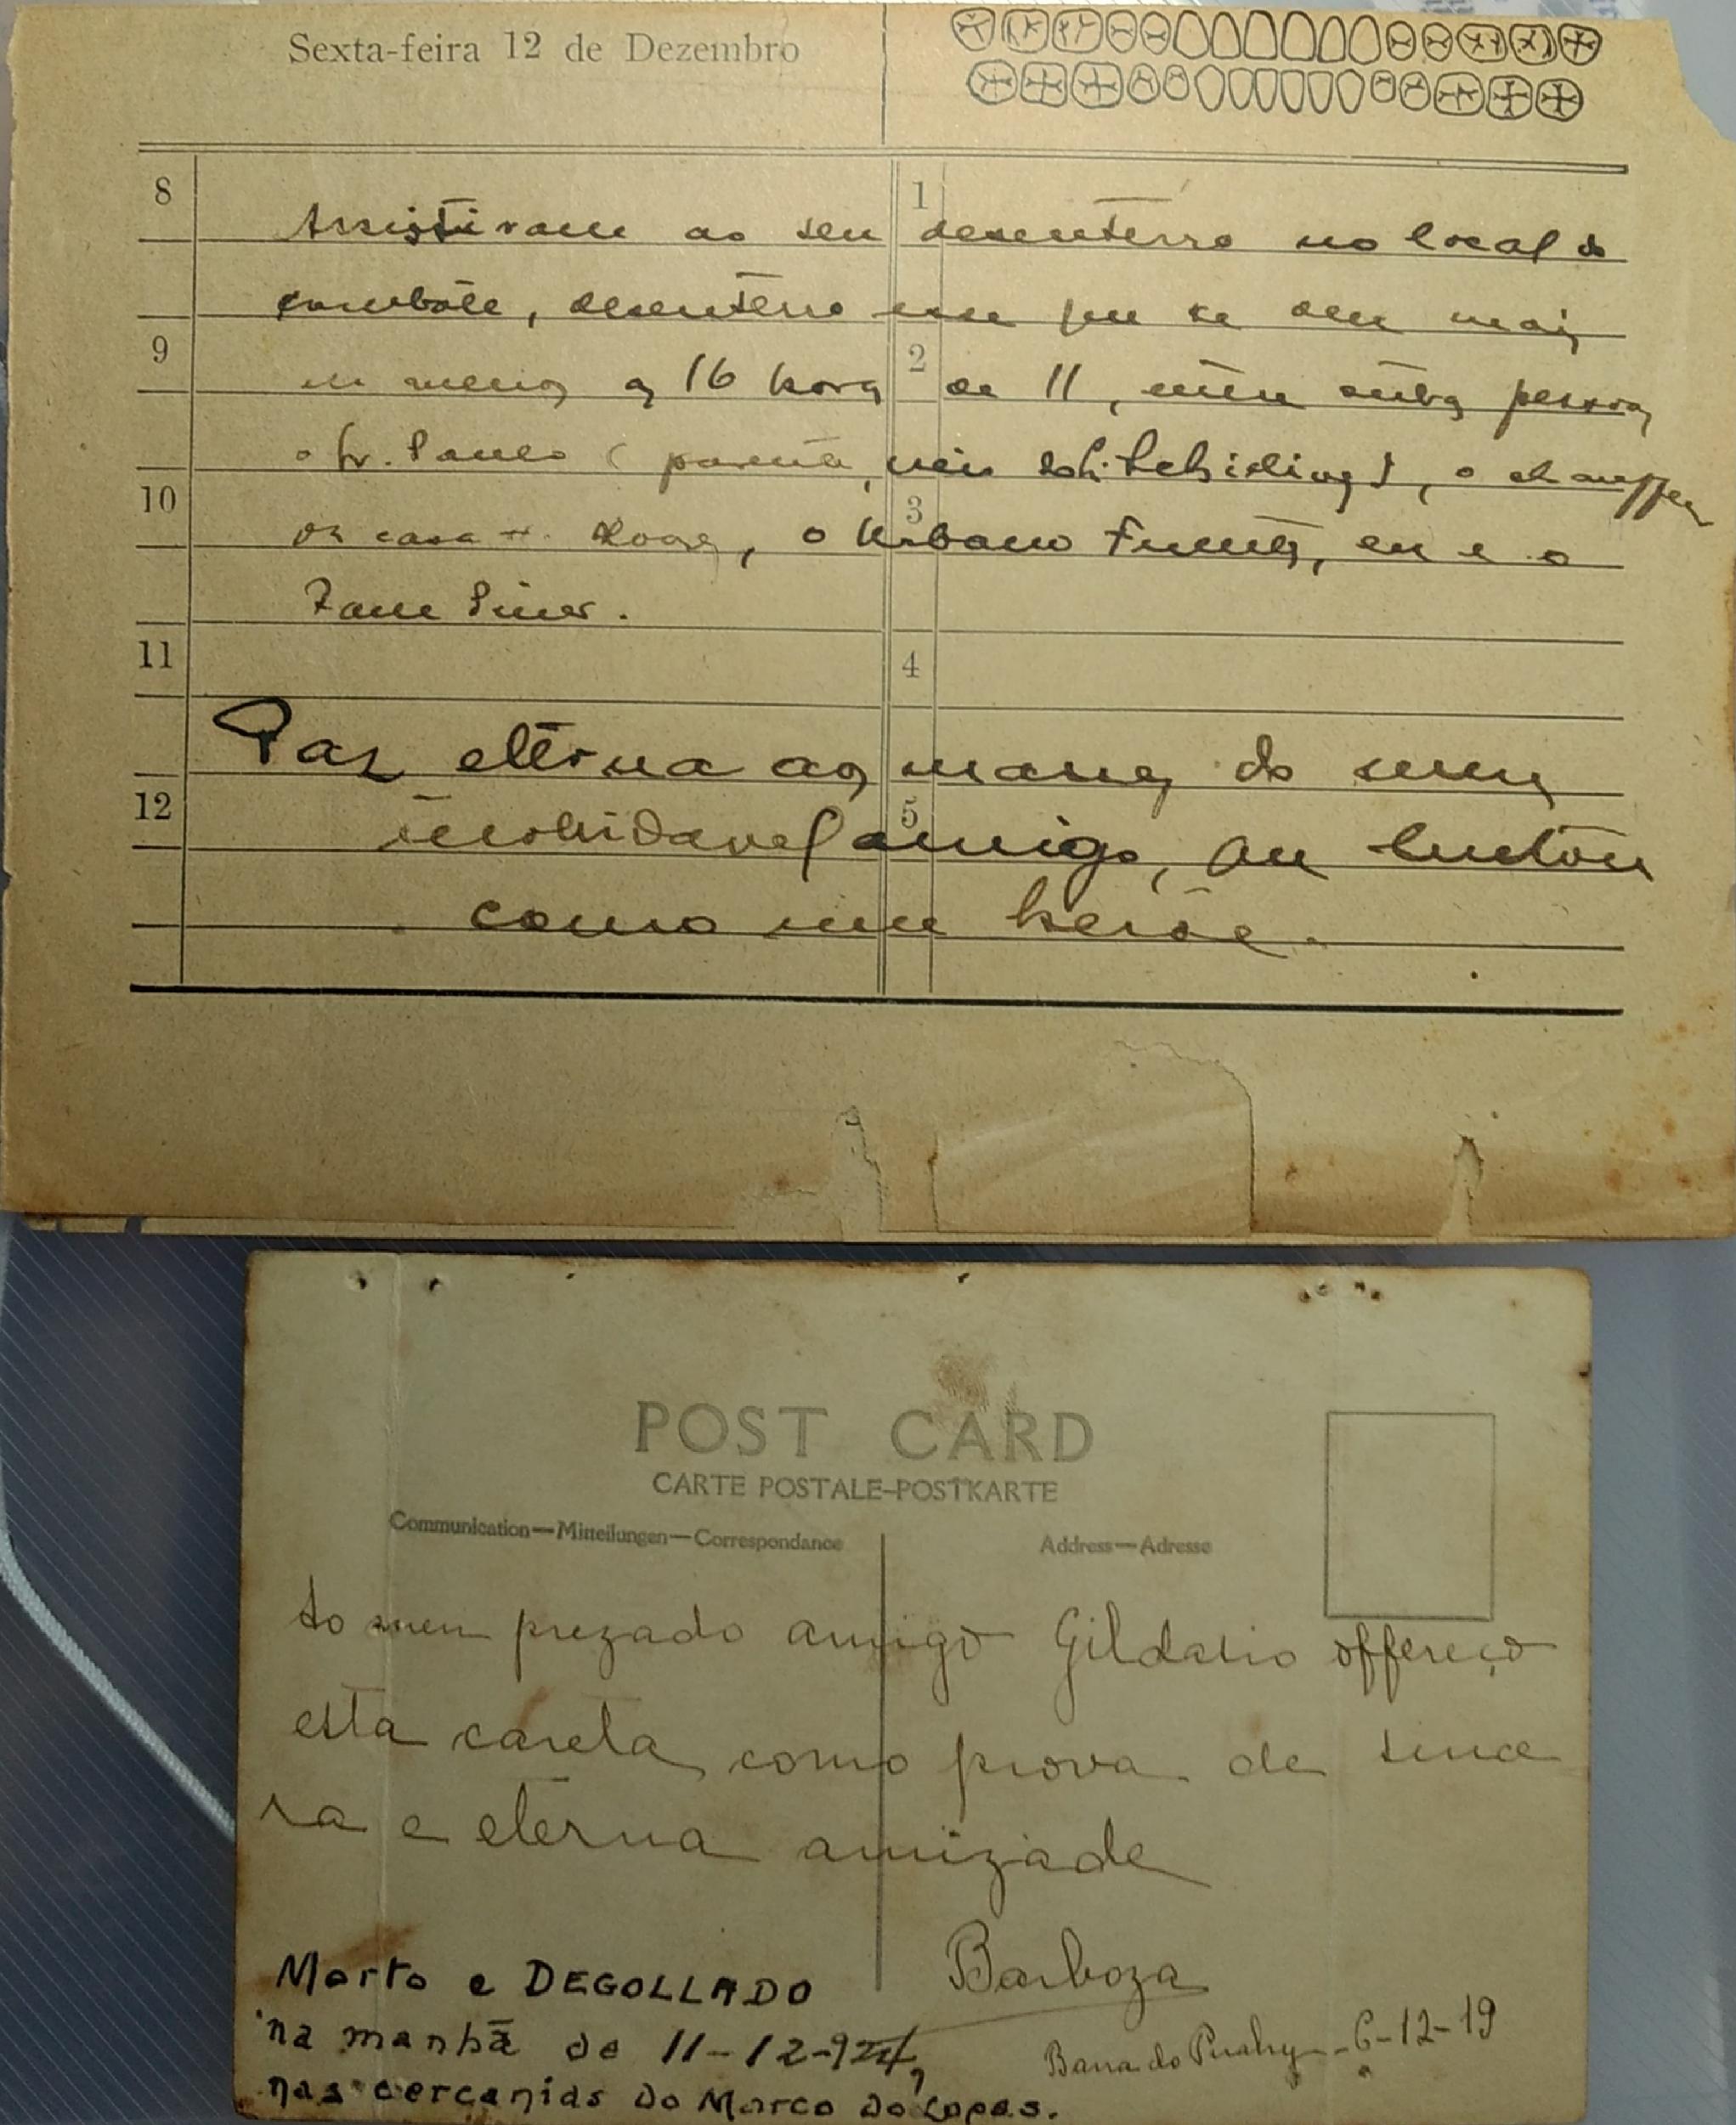 Sexta-feira 12 de Dezembro
8 1
Assistiram ao seu desenterro no local do
combate, desenterro esse que se deu mais
9 2
ou menos as 16 horas de 11, entre outras pessoas
o Sr. Paulo ( parente
10 3
da casa o Urbano eu e o
11 4
Paz eterna aos manes do meu
12 5
inolvidavel amigo, que luctou
como um heróe.
POST CARD
CARTE POSTALE-POSTKARTE
Communication—Mitteilungen—Correspondance Address—Adresse
Ao meu prezado amigo Gildasio offereço
esta careta como prova de since
ra e eterna amizade
Barboza
Barra do Pirahy - 6-12-19
Morto e DEGOLLADO
na manhã de 11-12-924,
nas cercanias do Marco do Lopes.